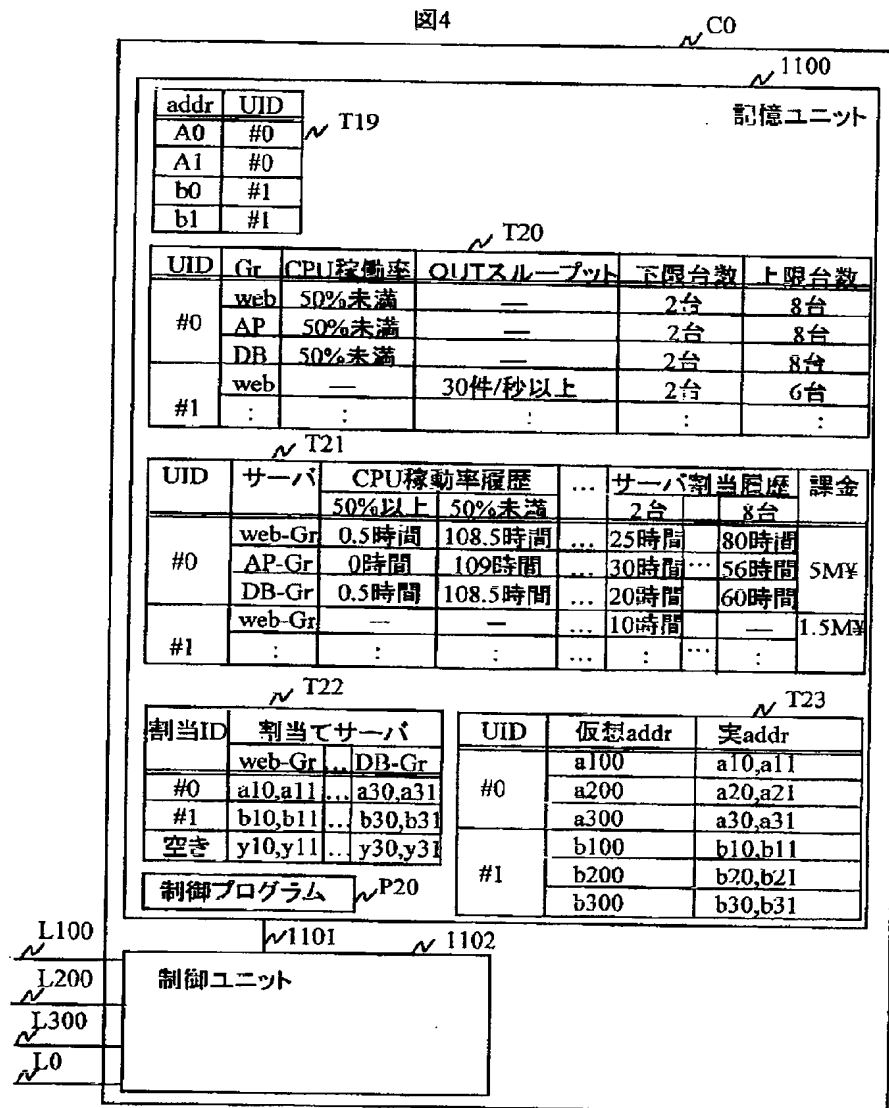 図4
C0
1100
記憶ユニット
addr UID
T19
A0 #0
A1 #0
b0 #1
b1 #1
T20
UID Gr CPU稼働率 OUTスループット 下限台数 上限台数
#0 web 50%未満 — 2台 8台
AP 50%未満 — 2台 8台
DB 50%未満 — 2台 8台
#1 web — 30件/秒以上 2台 6台
: : : : :
T21
UID サーバ CPU稼動率履歴 … サーバ割当履歴 課金
50%以上 50%未満 2台 8台
#0 web-Gr 0.5時間 108.5時間 … 25時間 80時間 5M¥
AP-Gr 0時間 109時間 … 30時間 … 56時間
DB-Gr 0.5時間 108.5時間 … 20時間 60時間
#1 web-Gr — — … 10時間 — 1.5M¥
: : : … : … :
T22
割当ID 割当てサーバ
web-Gr … DB-Gr
#0 a10,a11 … a30,a31
#1 b10,b11 … b30,b31
空き y10,y11 … y30,y31
T23
UID 仮想addr 実addr
#0 a100 a10,a11
a200 a20,a21
a300 a30,a31
#1 b100 b10,b11
b200 b20,b21
b300 b30,b31
制御プログラム P20
1101
1102
制御ユニット
L100
L200
L300
L0